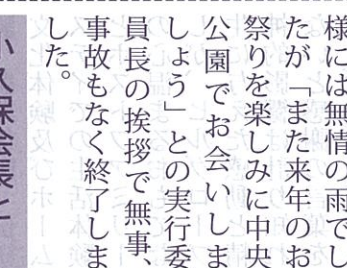 様には無情の雨でし
たが「また来年のお
祭りを楽しみに中央
公園でお会いしま
しょう」との実行委
員長の挨拶で無事、
事故もなく終了しま
した。
小久保会長と